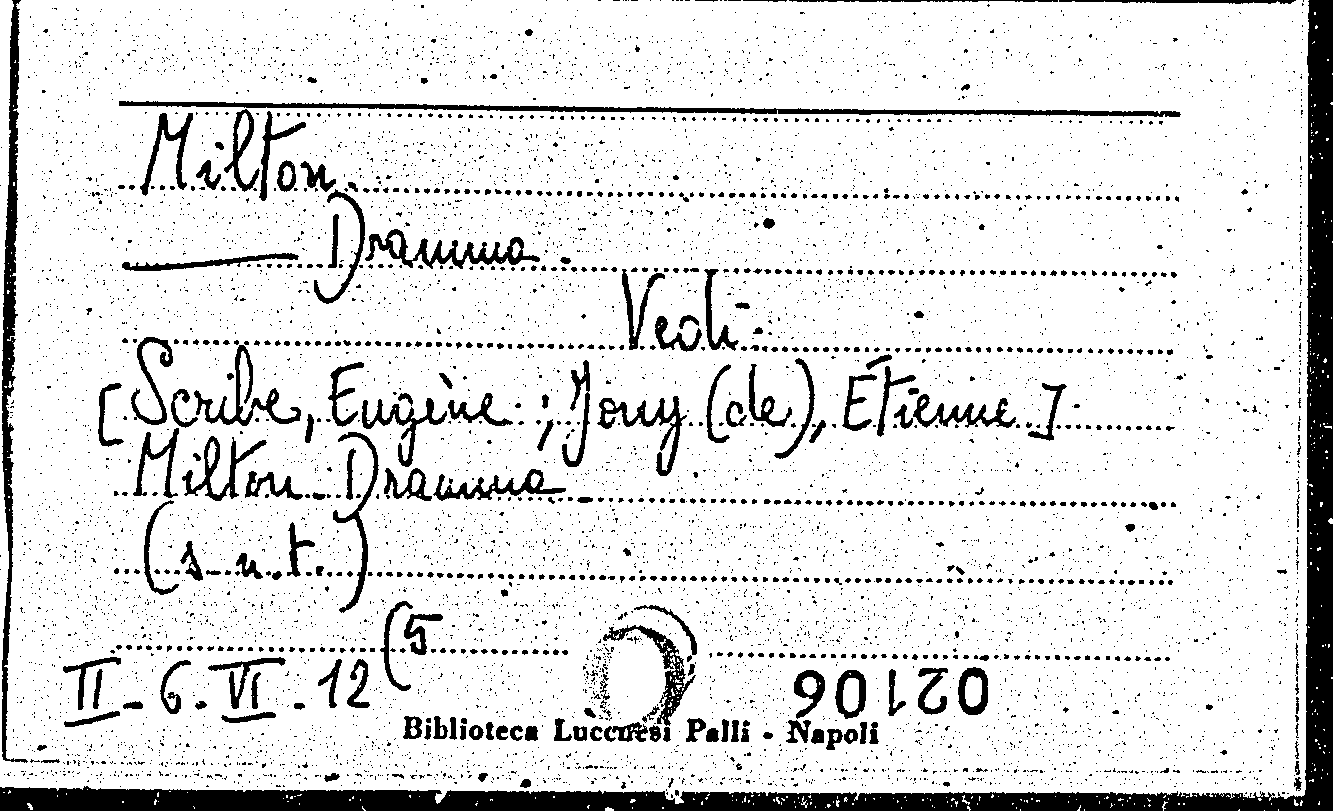 Milton
——— Dramma.
Vedi:
[Scribe, Eugène ; Jouy (de), Étienne].
Milton. Dramma.
(s.n.t.)
II-6.VI.12(5
02106
Biblioteca Lucchesi Palli - Napoli